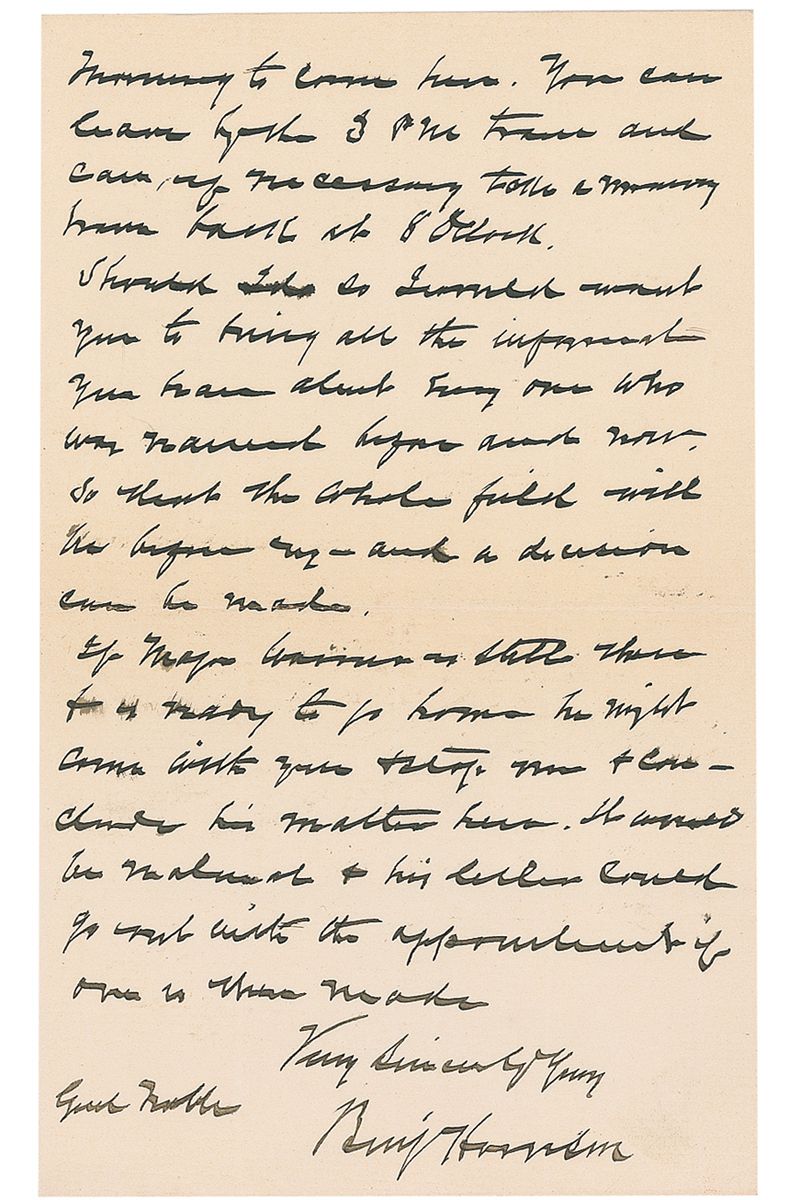 Morning to come here. You can
leave by the 3 PM train and
can, if necessary take a morning
train back at 8 O'Clock.
Should I do so I would want
you to bring all the informat
you have about every one who
was named before and now.
So that the whole field will
be before us – and a decision
can be made.
If Major Warner is still there
& is ready to go home he might
come with you & stop over & con–
clude his matter here. It would
be natural & his letter could
go out with the appointment if
one is then made
Very Sincerely Yours
Genl Noble
Benj Harrison